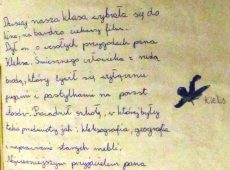 Dzisiaj nasza klasa wybrała się do
kina, na bardzo ciekawy film.
Był on o wesołych przygodach pana
Kleksa. Śmiesznego człowieka z rudą
brodą, który żywił się wyłącznie
pigułkami i pastylkami na porost
włosów. Prowadził szkołę, w której były
takie przedmioty jak: kleksografia, geografia
i naprawianie starych mebli.
Najwierniejszym przyjacielem pana
Kleks